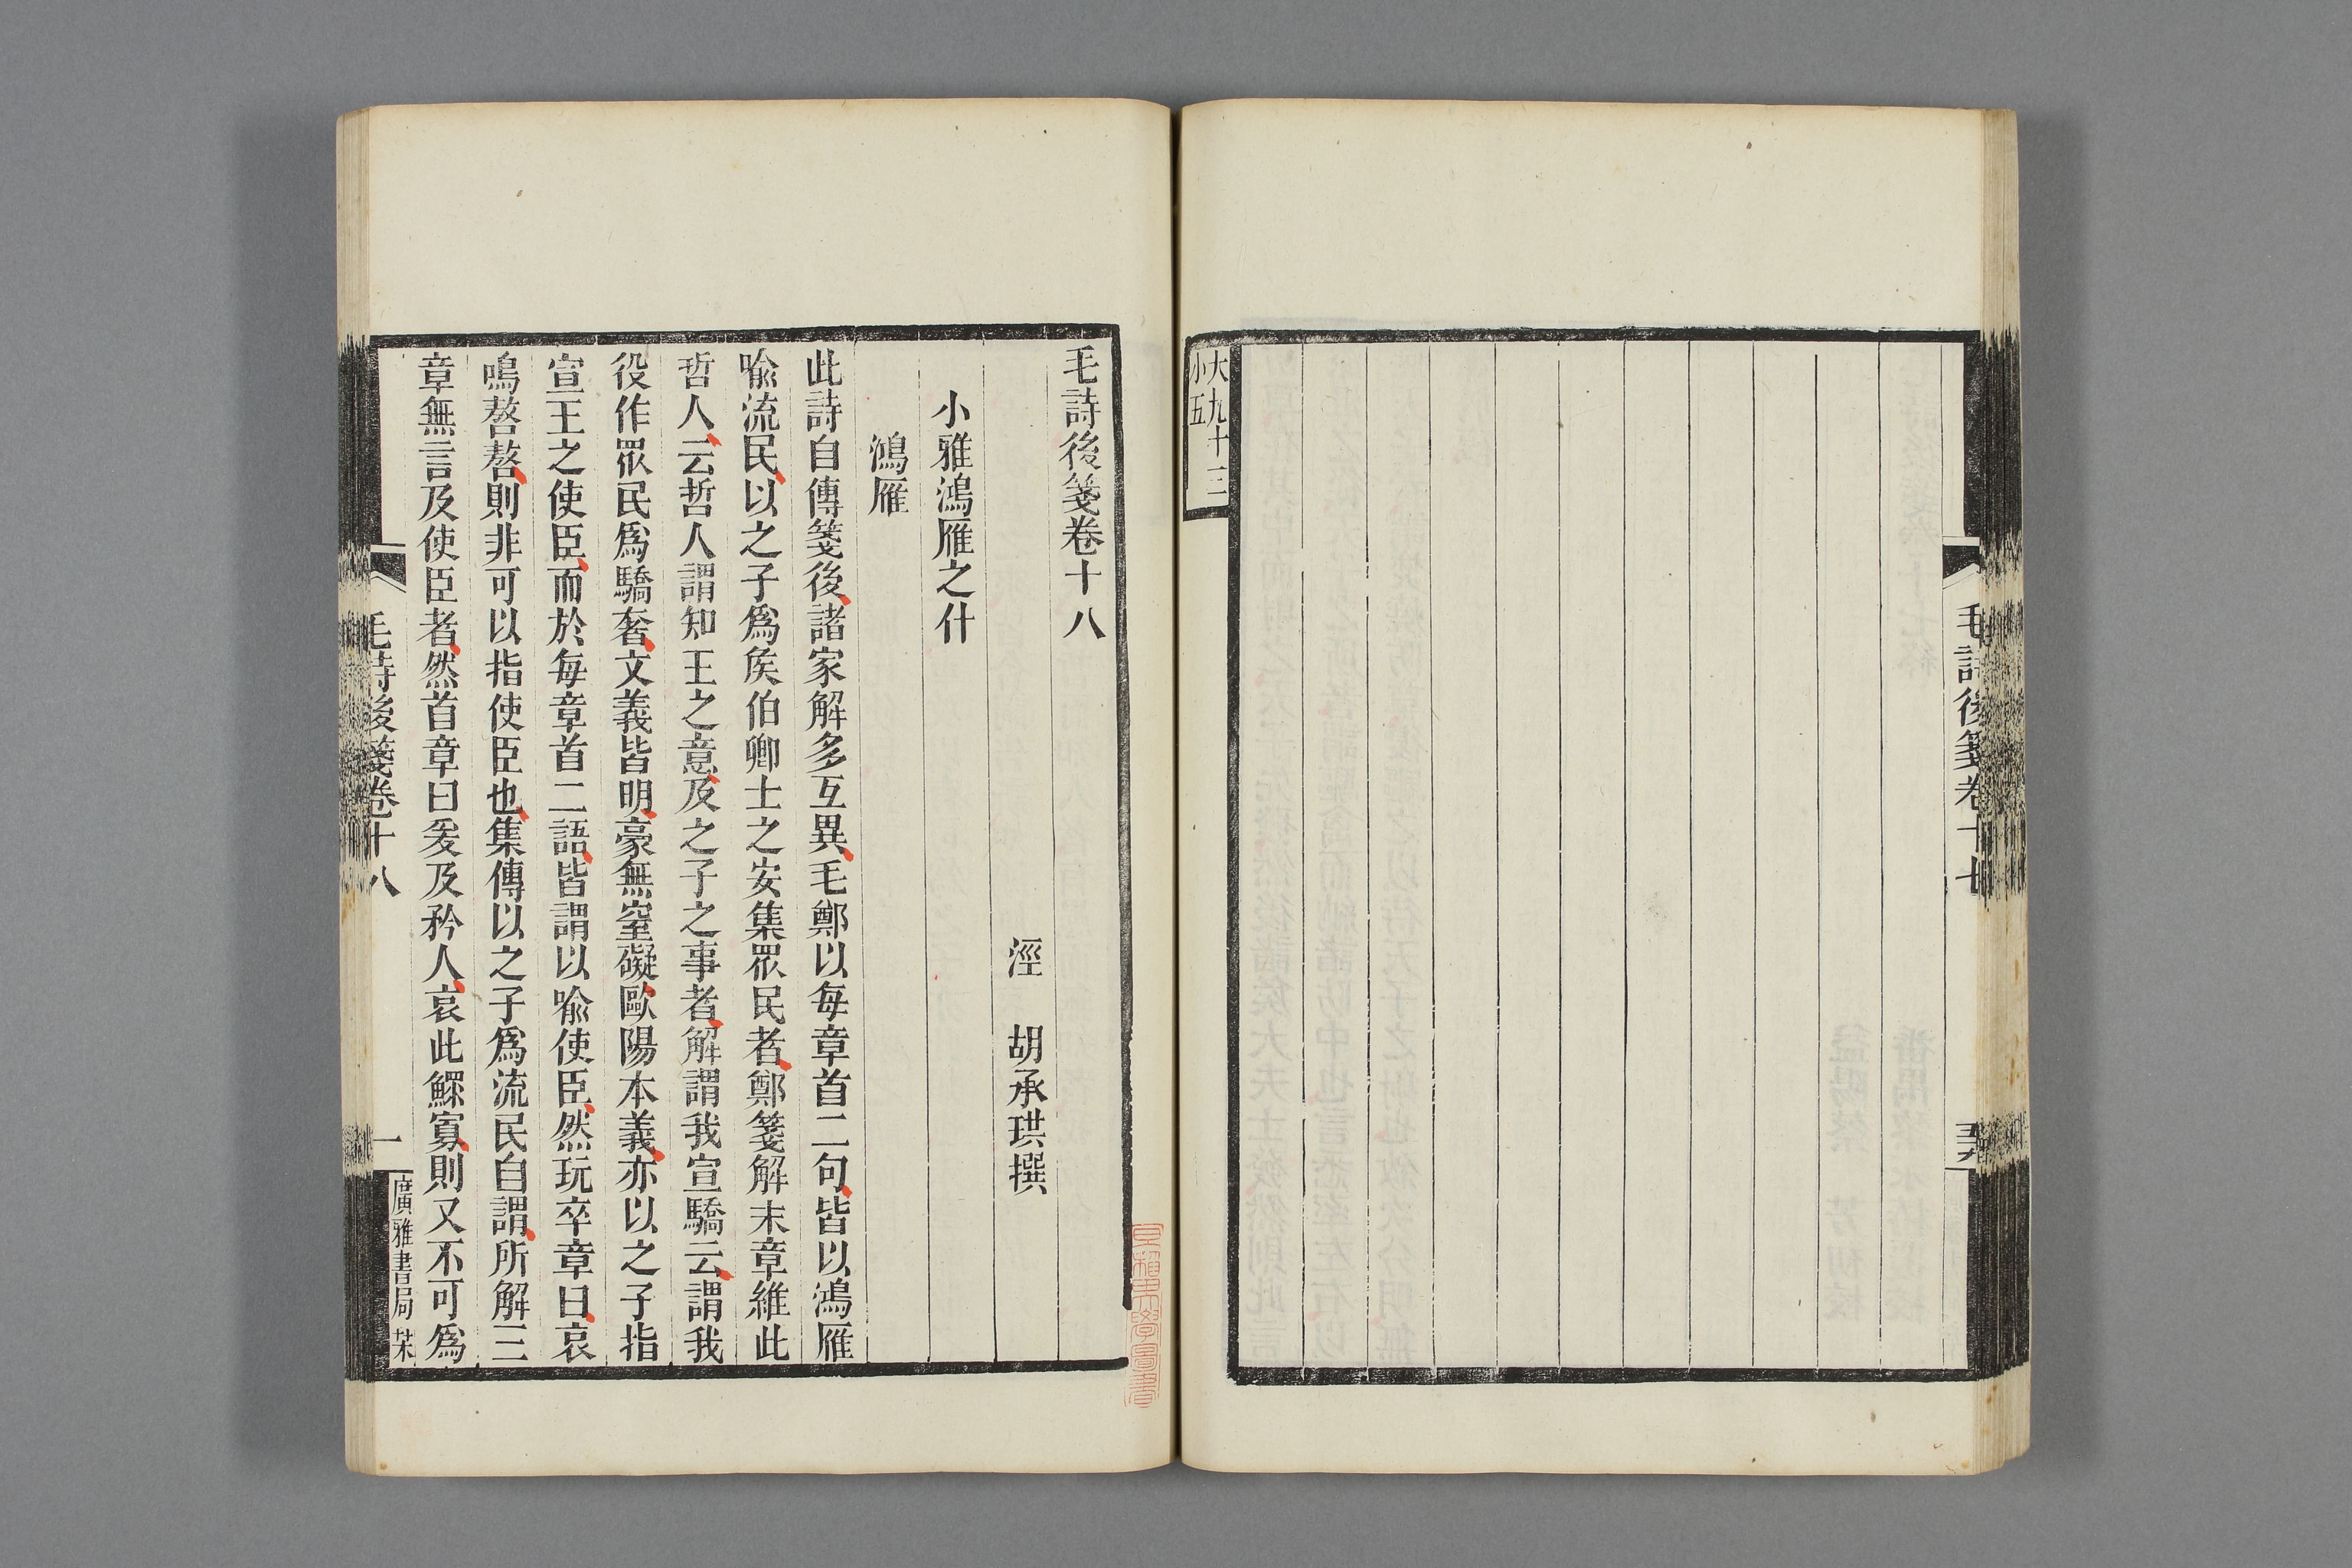 毛詩後箋卷十七
五十九
大九十三
小五
毛詩後箋卷十八
涇　胡承珙撰
小雅鴻雁之什
鴻雁
此詩自傳箋後諸家解多互異毛鄭以每章首二句皆以鴻雁
喻流民以之子爲矦伯卿士之安集眾民者鄭箋解末章維此
哲人云哲人謂知王之意及之子之事者解謂我宣驕云謂我
役作眾民爲驕奢文義皆明豪無窒礙歐陽本義亦以之子指
宣王之使臣而於每章首二語皆謂以喻使臣然玩卒章曰哀
鳴嗸嗸則非可以指使臣也集傳以之子爲流民自謂所解三
章無言及使臣者然首章曰爰及矜人哀此鰥寡則又不可爲
毛詩後箋卷十八
一
廣雅書局栞